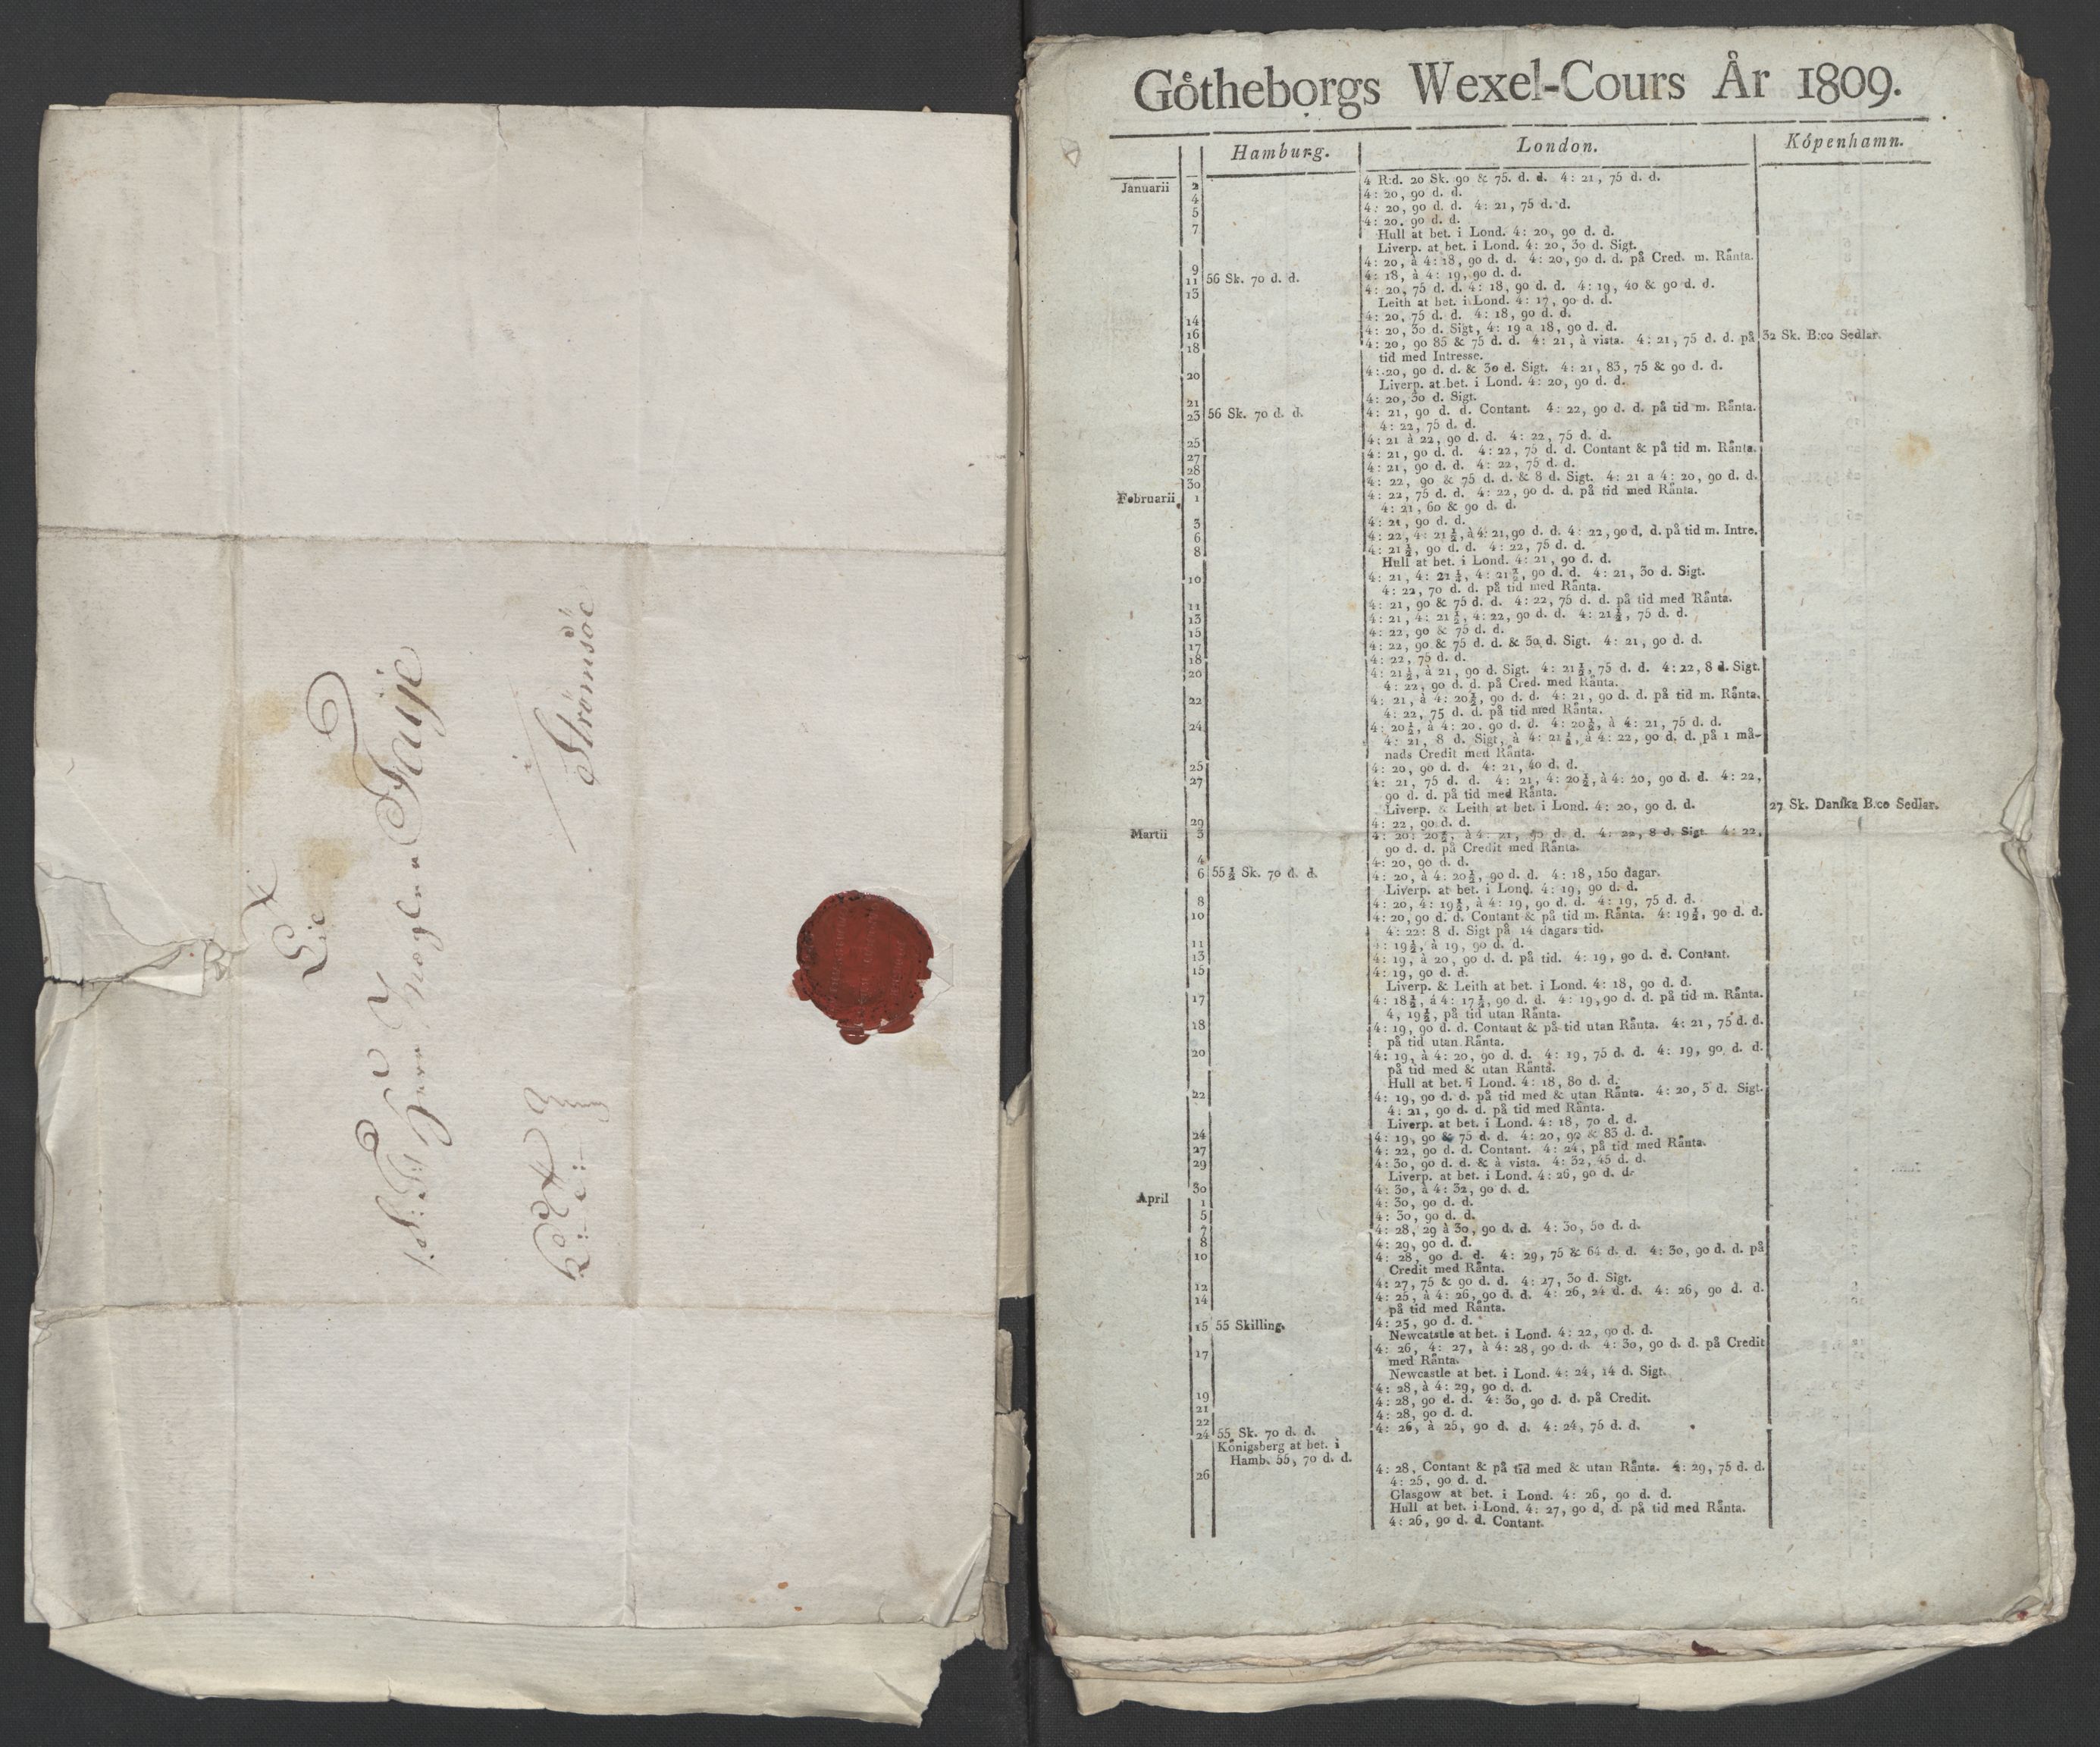 Herr
Strömsöe
Götheborgs Wexel-Cours År 1809.
Hamburg. London. Köpenhamn.
Januarii 2 4 R:d. 20 Sk. 90 & 75. d. d. 4: 21, 75 d. d.
4 4: 20, 90 d. d.
5 4: 20, 90 d. d. 4: 21, 75 d. d.
7 4: 20. 90 d. d.
Hull at bet. i Lond. 4: 20, 90 d. d.
Liverp. at bet. i Lond. 4: 20, 30 d. Sigt.
9 4: 20, à 4: 18, 90 d. d. 4: 20, 90 d. d. på Cred. m. Rånta.
11 56 Sk. 70 d. d. 4: 18, à 4: 19, 90 d. d.
13 4: 20, 75 d. d. 4: 18, 90 d. d. 4: 19, 40 & 90 d. d.
Leith at bet. i Lond. 4: 17, 90 d. d.
14 4: 20, 75 d. d. 4: 18, 90 d. d.
16 4: 20, 30 d. Sigt, 4: 19 a 18, 90 d. d.
18 4: 20, 90 85 & 75 d. d. 4: 21, à vista. 4: 21, 75 d. d. på 32 Sk. B:co Sedlar.
tid med Intresse.
20 4: 20, 90 d. d. & 30 d. Sigt. 4: 21, 83, 75 & 90 d. d.
Liverp. at bet. i Lond. 4: 20, 90 d. d.
21 4: 20, 30 d. Sigt.
23 56 Sk. 70 d. d. 4: 21, 90 d. d. Contant. 4: 22, 90 d. d. på tid m. Rånta.
4: 22, 75 d. d.
25 4: 21 à 22, 90 d. d. 4: 22, 75 d. d.
27 4: 21, 90 d. d. 4: 22, 75 d. d. Contant & på tid m. Rånta.
28 4: 21, 90 d. d. 4: 22, 75 d. d.
30 4: 22, 90 & 75 d. d. & 8 d. Sigt. 4: 21 a 4: 20, 90 d. d.
Februarii 1 4: 22, 75 d. d. 4: 22, 90 d. d. på tid med Rånta.
4: 21, 60 & 90 d. d.
3 4: 21, 90 d. d.
6 4: 22, 4: 21½, à 4: 21, 90 d. d. 4: 22, 90 d. d. på tid m. Intre.
8 4: 21½, 90 d. d. 4: 22, 75 d. d.
Hull at bet. i Lond. 4: 21, 90 d. d.
10 4: 21, 4: 21¼, 4: 21½, 90 d. d. 4: 21, 30 d. Sigt.
4: 22, 70 d. d. på tid med Rånta.
11 4: 21, 90 & 75 d. d. 4: 22, 75 d. d. på tid med Rånta.
13 4: 21, 4: 21½, 4: 22, 90 d. d. 4: 21½, 75 d. d.
15 4: 22, 90 & 75 d. d.
17 4: 22, 90 & 75 d. d. & 30 d. Sigt. 4: 21, 90 d. d.
18 4: 22, 75 d. d.
20 4: 21½, à 21, 90 d. Sigt. 4: 21½, 75 d. d. 4: 22, 8 d. Sigt.
4: 22, 90 d. d. på Cred. med Rånta.
22 4: 21, à 4: 20½, 90 d. d. 4: 21, 90 d. d. på tid m. Rånta.
4: 22, 75 d. d. på tid med Rånta.
24 4: 20½, à 4: 20, 90 d. d. 4: 20½, à 4: 21, 75 d. d.
4: 21, 8 d. Sigt, à 4: 21½, à 4: 22, 90 d. d. på 1 må-
nads Credit med Rånta.
25 4: 20, 90 d. d. 4: 21, 40 d. d.
27 4: 21, 75 d. d. 4: 21, 4: 20½, à 4: 20, 90 d. d. 4: 22,
90 d. d. på tid med Rånta.
Liverp. & Leith at bet. i Lond. 4: 20, 90 d. d. 27 Sk. Danſka B:co Sedlar.
29 4: 22, 90 d. d.
Martii 3 4: 20: 20½, à 4: 21, 90 d. d. 4: 22, 8 d. Sigt. 4: 22,
90 d. d. på Credit med Rånta.
4 4: 20, 90 d. d.
6 55½ Sk. 70 d. d. 4: 20, à 4: 20½, 90 d. d. 4: 18, 150 dagar.
Liverp. at bet. i Lond. 4: 19, 90 d. d.
8 4: 20, 4: 19½, à 4: 19, 90 d. d. 4: 19, 75 d. d.
10 4: 20, 90 d. d. Contant & på tid m. Rånta. 4: 19½, 90 d. d.
4: 22: 8 d. Sigt på 14 dagars tid.
11 4: 19½, à 19, 90 d. d.
13 4: 19, à 20, 90 d. d. på tid. 4: 19, 90 d. d. Contant.
15 4: 19, 90 d. d.
Liverp. & Leith at bet. i Lond. 4: 18, 90 d. d.
17 4: 18½, á 4: 17½, 90 d. d. 4: 19, 90 d. d. på tid m. Rånta.
4, 19½, på tid utan Rånta.
18 4: 19, 90 d. d. Contant & på tid utan Rånta. 4: 21, 75 d. d.
på tid utan Rånta.
20 4: 19, à 4: 20, 90 d. d. 4: 19, 75 d. d. 4: 19, 90 d. d.
på tid med & utan Rånta.
Hull at bet. i Lond. 4: 18, 80 d. d.
22 4: 19, 90 d. d. på tid med & utan Rånta. 4: 20, 3 d. Sigt.
4: 21, 90 d. d. på tid med Rånta.
Liverp. at bet. i Lond. 4: 18, 70 d. d.
24 4: 19, 90 & 75 d. d. 4: 20, 90 & 83 d. d.
27 4: 22, 90 d. d. Contant. 4: 24, på tid med Rånta.
29 4: 30, 90 d. d. & à vista. 4: 32, 45 d. d.
Liverp. at bet. i Lond. 4: 26, 90 d. d.
30 4: 30, à 4: 32, 90 d. d.
April 1 4: 30, 90 d. d.
5 4: 30, 90 d. d.
7 4: 28, 29 à 30, 90 d. d. 4: 30, 50 d. d.
8 4: 29, 90 d. d.
10 4: 28, 90 d. d. 4: 29, 75 & 64 d. d. 4: 30, 90 d. d. på
Credit med Rånta.
12 4: 27, 75 & 90 d. d. 4: 27, 30 d. Sigt.
14 4: 25, à 4: 26, 90 d. d. 4: 26, 24 d. d. 4: 26, 90 d. d.
på tid med Rånta.
15 55 Skilling. 4: 25, 90 d. d.
Newcatstle at bet. i Lond. 4: 22, 90 d. d.
17 4: 26, 4: 27, à 4: 28, 90 d. d. 4: 30, 90 d. d. på Credit
med Rånta.
Newcastle at bet. i Lond. 4: 24, 14 d. Sigt.
19 4: 28, à 4: 29, 90 d. d.
21 4: 28, 90 d. d. 4: 30, 90 d. d. på Credit.
22 4: 28, 90 d. d.
24 55 Sk. 70 d. d. 4: 26, à 25, 90 d. d. 4: 24, 75 d. d.
Königsberg at bet. i
Hamb. 55, 70 d. d.
26 4: 28, Contant & på tid med & utan Rånta. 4: 29, 75 d. d.
4: 25, 90 d. d.
Glasgow at bet. i Lond. 4: 26, 90 d. d.
Hull at bet. i Lond. 4: 27, 90 d, d. på tid med Rånta.
4: 26, 90 d. d. Contant.